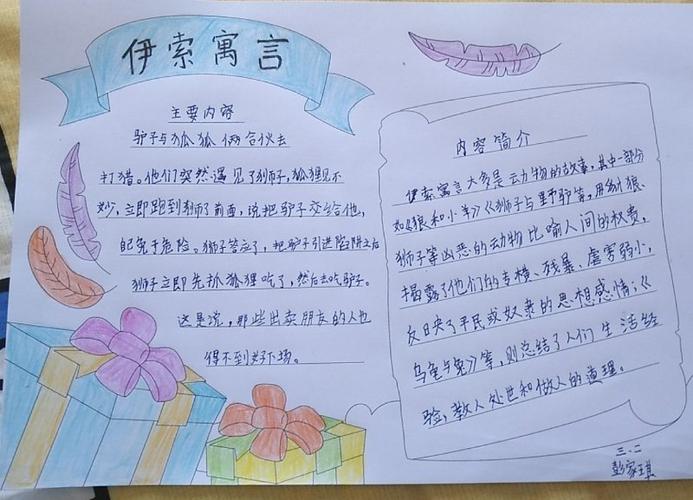 伊索寓言
主要内容
驴子与狐狐俩合伙去
打猎。他们突然遇见了狮子,狐狸见不
妙,立即跑到狮子前面,说把驴子交给他,
自己免于危险。狮子答应了,把驴子引进陷阱之后
狮子立即先抓狐狸吃了,然后去吃驴子。
这是说,那些出卖朋友的人也
得不到好下场。
内容简介
伊索寓言大多是动物的故事,其中一部分
如《狼和小羊》《狮子与野驴等,用豺狼、
狮子等凶恶的动物比喻人间的权贵,
揭露了他们的专横、残暴、虐害弱小,
反日央了平民或奴隶的思想感情;《
乌龟与兔》等,则总结了人们生活经
验,教人处世和做人的道理。
三.二
彭家琪